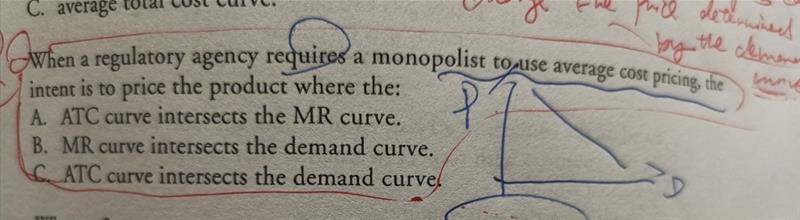 C. average total cost curve.
the price determined
by the
When a regulatory agency requires a monopolist to use average cost pricing, the
intent is to price the product where the:
A. ATC curve intersects the MR curve.
B. MR curve intersects the demand curve.
C. ATC curve intersects the demand curve.
P
D